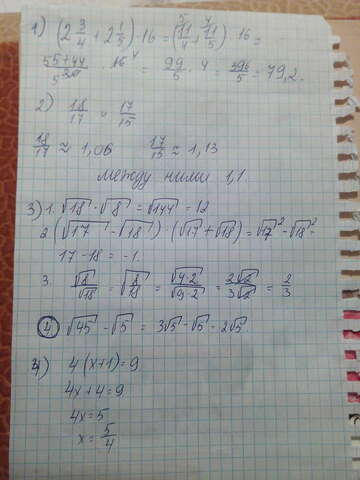 1) (2 3/4 + 2 1/5) · 16 = (11/4 + 11/5) · 16 =
(55+44)/20 · 16 = 99/5 · 4 = 396/5 = 79,2.
2) 18/17 и 17/15
18/17 ≈ 1,06 17/15 ≈ 1,13
между ними 1,1.
3) 1. √18 · √8 = √144 = 12
2 (√17 - √18) · (√17 + √18) = √17² - √18² =
17 - 18 = -1.
3. √8/√18 = √8/18 = √4·2/√9·2 = 2√2/3√2 = 2/3
4) √45 - √5 = 3√5 - √5 = 2√5
4) 4(x+1) = 9
4x + 4 = 9
4x = 5
x = 5/4